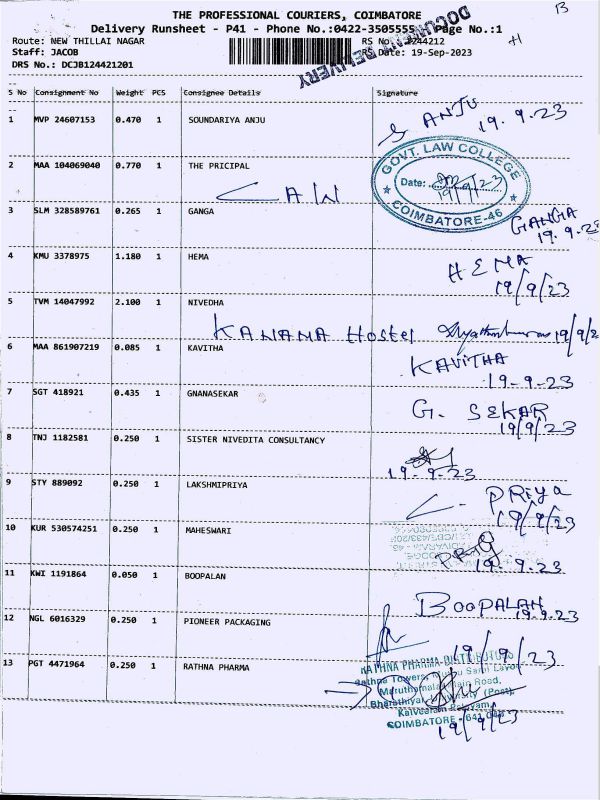 THE PROFESSIONAL COURIERS, COIMBATORE
Delivery Runsheet - P41 - Phone No.:0422-3505555 Page No.:1
Route: NEW THILLAI NAGAR
Staff: JACOB
RS Date: 19-Sep-2023
DRS No.: DCJB124421201
S No Consignment No Weight PCS Consignee Details Signature
1 MVP 24607153 0.470 1 SOUNDARIYA ANJU
ANJU
19.9.23
2 MAA 104069040 0.770 1 THE PRICIPAL
GOVT. LAW COLLEGE
Date: 19/9/23
COIMBATORE-46
3 SLM 328589761 0.265 1 GANGA
GANGA
19.9.23
4 KMU 3378975 1.180 1 HEMA
HEMA
19/9/23
5 TVM 14047992 2.100 1 NIVEDHA
Hostel 19/9/2
6 MAA 861907219 0.085 1 KAVITHA
KAVITHA
19-9-23
7 SGT 418921 0.435 1 GNANASEKAR
G. SEKAR
19/9/23
8 TNJ 1182581 0.250 1 SISTER NIVEDITA CONSULTANCY
19-9-23
9 STY 889092 0.250 1 LAKSHMIPRIYA
PRiya
19/9/23
10 KUR 530574251 0.250 1 MAHESWARI
19.9.23
11 KWI 1191864 0.050 1 BOOPALAN
BOOPALAN
19.9.23
12 NGL 6016329 0.250 1 PIONEER PACKAGING
19/9/23
13 PGT 4471964 0.250 1 RATHNA PHARMA
COIMBATORE
19/9/23